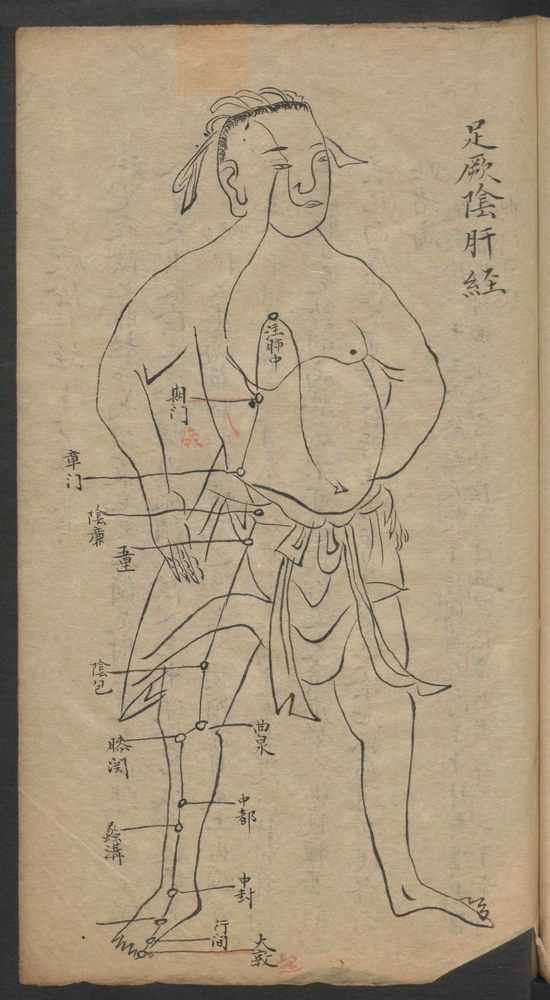 足厥陰肝経
注肺中
期门
终
章门
陰廉
五里
陰包
曲泉
膝関
中都
蠡溝
中封
行间
大敦